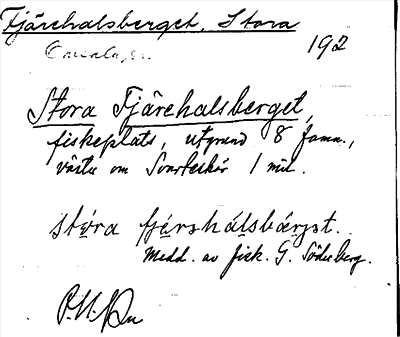 Fjärehalsberget, Stora
192
Stora Fjärehalsberget,
fiskeplats, utgrund 8 famn.,
väster om Svarteskär 1 mil.
stóra fjærshálsbærjət.
Medd. av fisk. G. Söderberg.